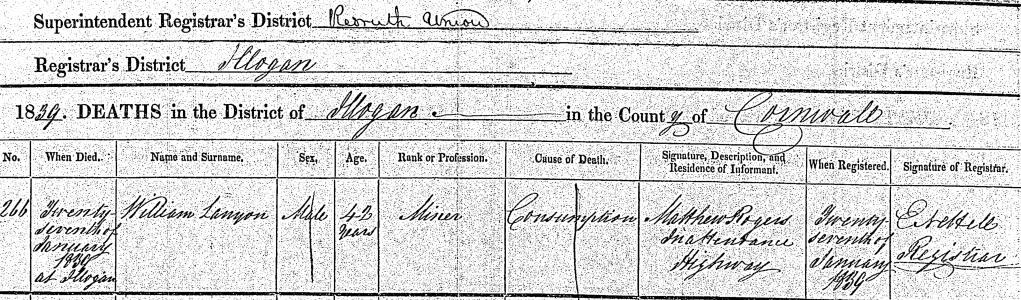 Superintendent Registrar's District Redruth Union
Registrar's District Illogan
1839. DEATHS in the District of Illogan in the County of Cornwall
No. When Died. Name and Surname. Sex. Age. Rank or Profession. Cause of Death. Signature, Description, and Residence of Informant. When Registered. Signature of Registrar.
266 Twenty William Lanyon Male 42 Miner Consumption Matthew Rogers Twenty
seventh of years In attendance seventh of Registrar
January Highway January
1839 1839
at Illogan